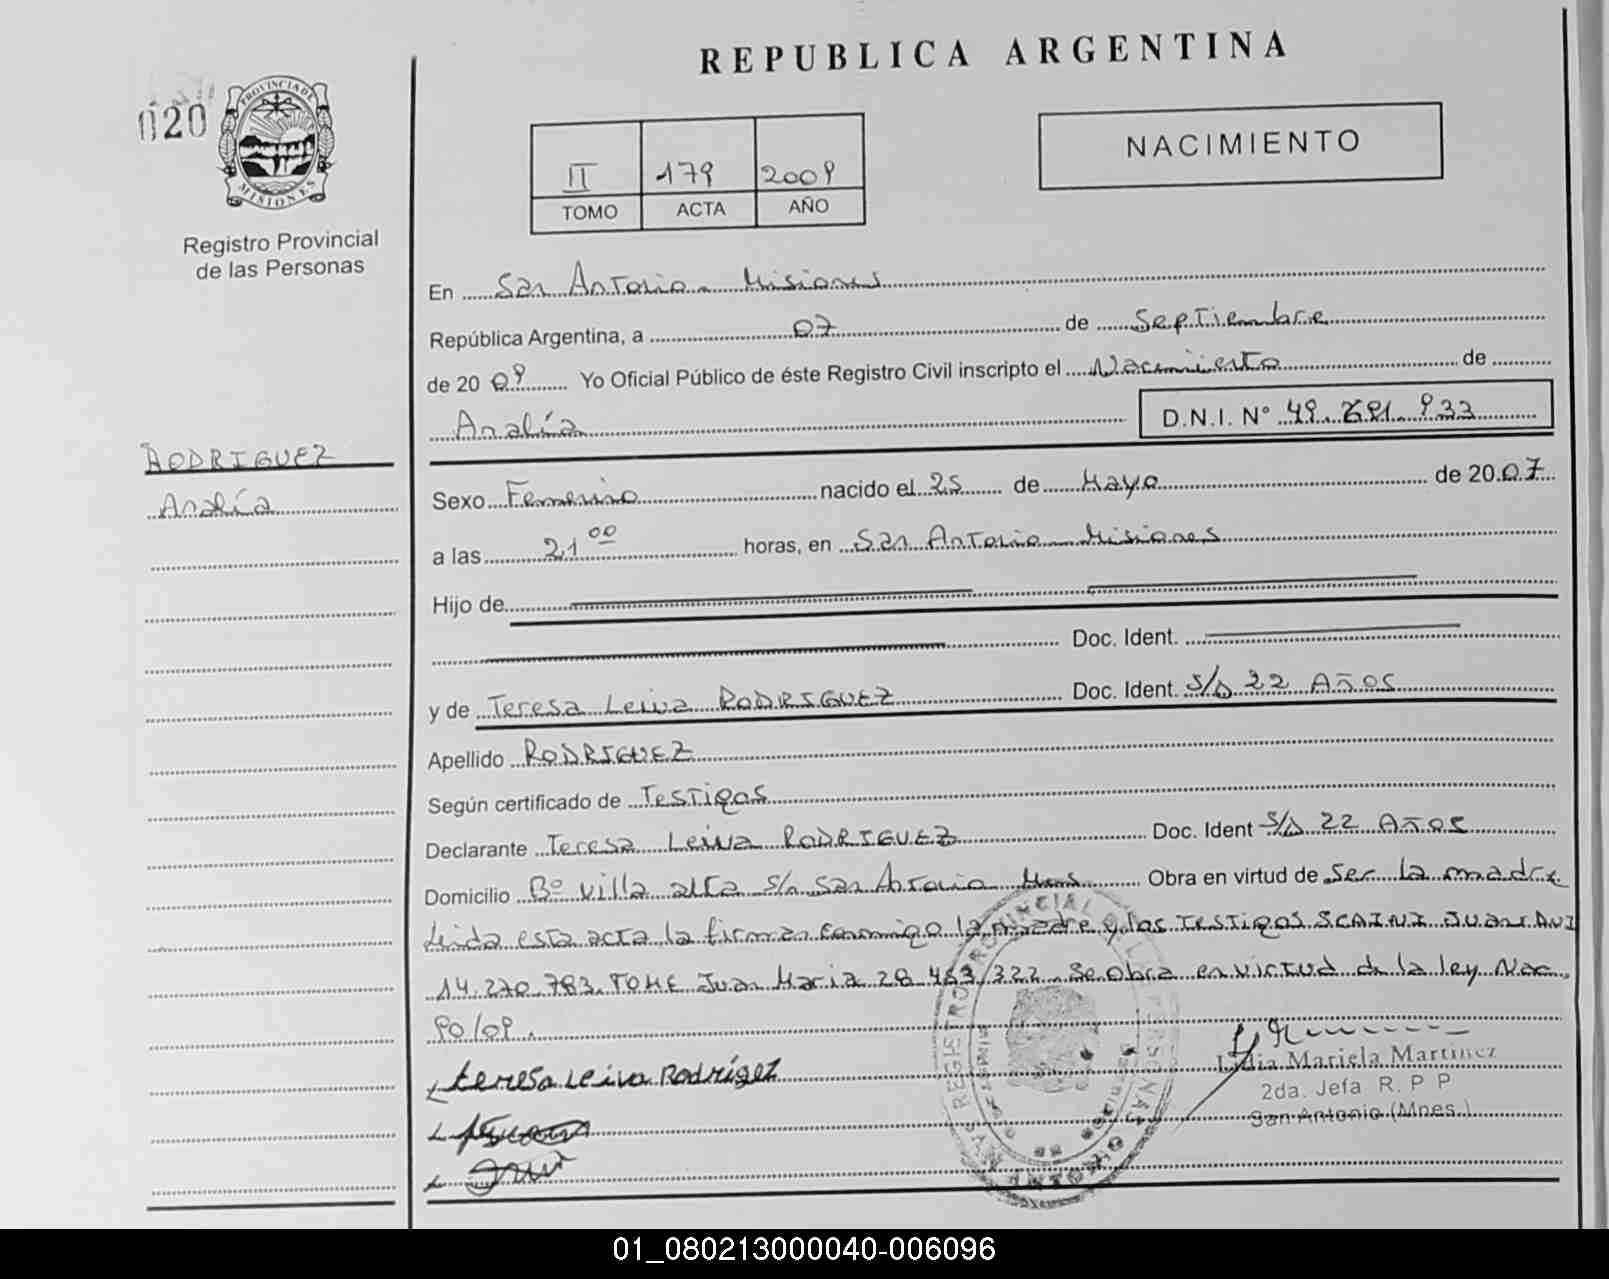 REPUBLICA ARGENTINA
020
PROVINCIA DE
MISIONES
Registro Provincial
de las Personas
II 179 2009
TOMO ACTA AÑO
NACIMIENTO
En San Antonio - Misiones
República Argentina, a 07 de Septiembre
de 20 09 Yo Oficial Público de éste Registro Civil inscripto el Nacimiento de
Analía D.N.I. Nº 49. 933
RODRIGUEZ
Analía
Sexo Femenino nacido el 25 de Mayo de 20 07
a las 21 00 horas, en San Antonio - Misiones
Hijo de
Doc. Ident.
y de Teresa Leiva RODRIGUEZ Doc. Ident. S/D 22 AÑOS
Apellido RODRIGUEZ
Según certificado de Testigos
Declarante Teresa Leiva RODRIGUEZ Doc. Ident S/D 22 AÑOS
Domicilio Bº Villa alta S/n San Antonio Mnes Obra en virtud de Ser la madre
Leida esta acta la firman conmigo la madre y los Testigos SCAINI Juan
14.270.783. TOME Juan Maria 28 463 322. Se obra en virtud de la ley Nac.
Teresa Leiva Rodrígez
REGISTRO PROVINCIAL DE LAS PERSONAS
SAN ANTONIO
Lidia Mariela Martinez
2da. Jefa R. P P
San Antonio (Mnes.)
01_080213000040-006096